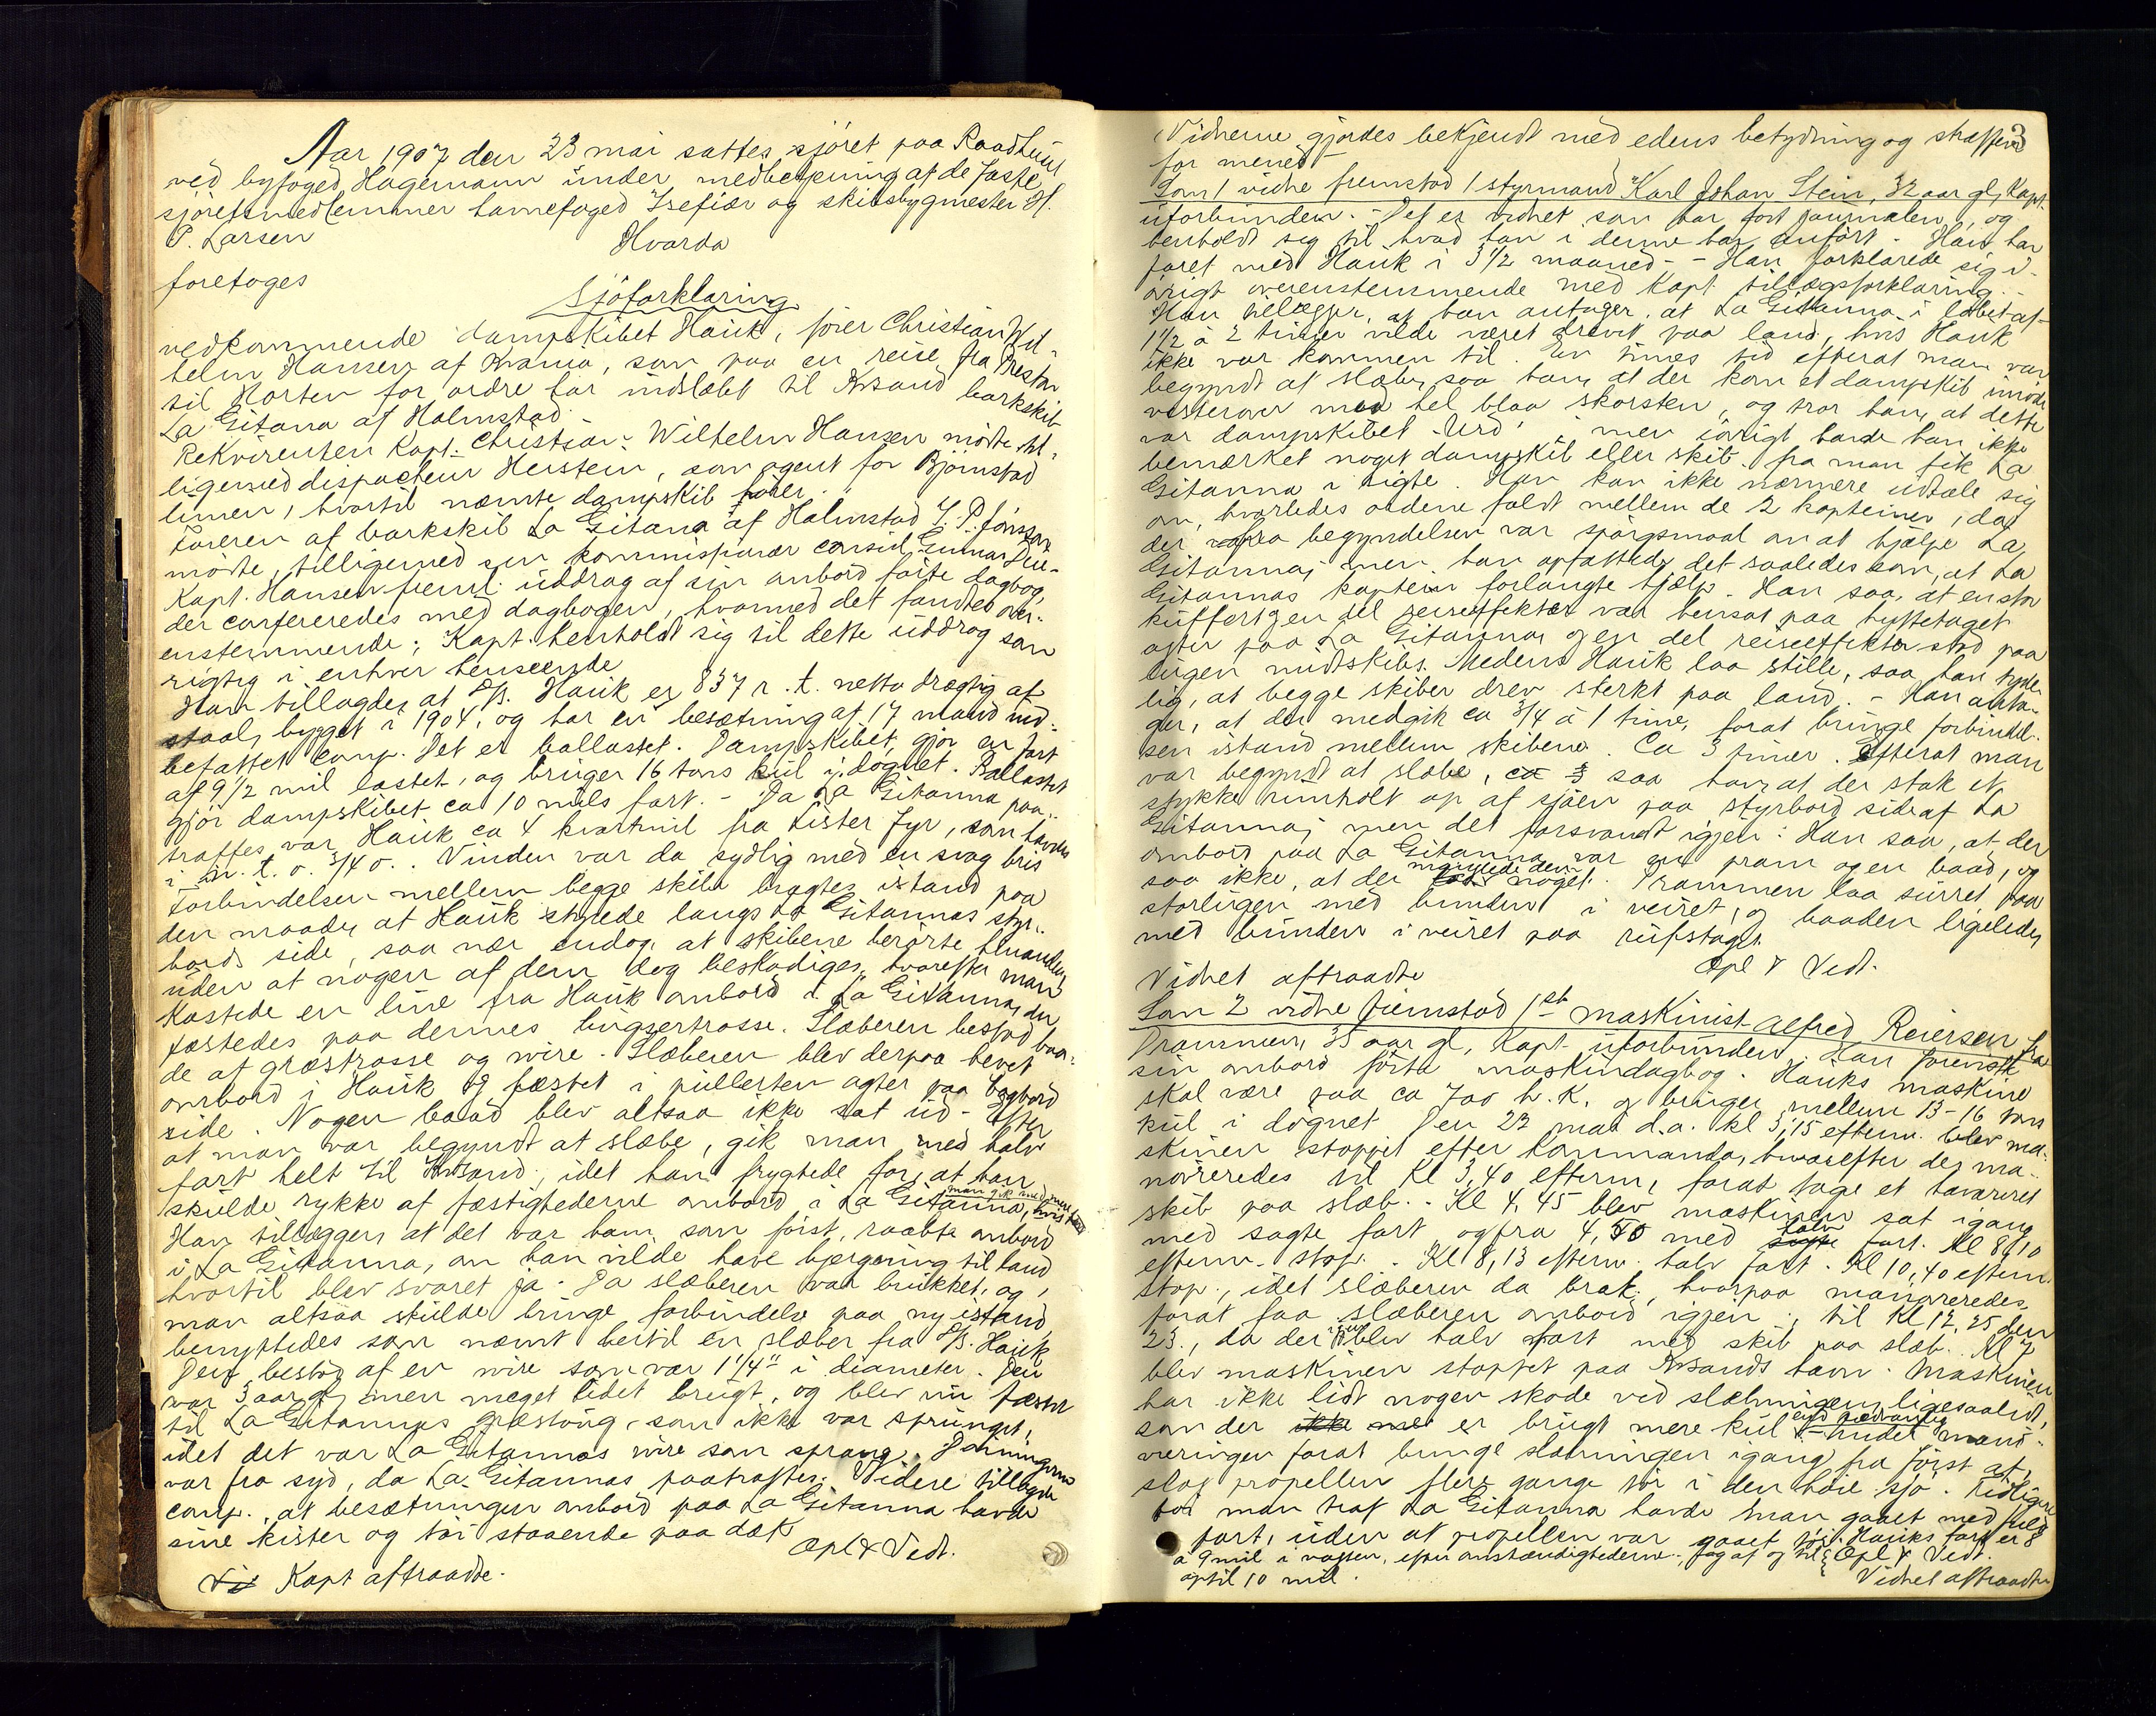 Aar 1907 den 23 mai sattes sjöret paa Raadhus
ved byfoged Hagemann under medbetjening af de faste
sjöretsmedlemmer havnefoged Isefiær og skibsbygmester H.
P. Larsen
Hvorda
foretoges
Sjöforklaring
vedkommende dampskibet Hauk, förer Christian Wil-
helm Hansen af Kr.ania, som paa en reise fra Preston
til Horten for ordre har indslæbt til Krsand barkskib
La Gitana af Halmstad.
Rekvirenten Kapt. Christian Wilhelm Hansen mödte til-
ligemed dispacheur Herstein, som agent for Björnstad
linien, hvortil nævnte dampskib hörer.
Föreren af barkskib La Gitana af Halmstad J. P. Jönsson
mödte, tilligemed sin kommissionær consul Gunnar
Kapt. Hansen freml. uddrag af sin ombord förte dagbog,
der confereredes med dagbogen, hvormed det fandtes over-
enstemmende; Kapt. henholdt sig til dette uddrag som
rigtig i enhver henseende
Han tillagde, at D/S. Hauk er 837 r. t. netto drægtig af
staal, bygget i 1904, og har en besætning af 17 mand ind-
befattet comp. Det er ballastet. Dampskibet gjör en fart
af 9 1/2 mil lastet, og bruger 16 tons kul i dögnet. Ballastet
gjör dampskibet ca 10 mils fart. - Da La Gitanna paa-
traffes var Hauk ca 4 kvartmil fra Lister Fyr, som havdes
i nr. t. o. 3/4 o. Vinden var da sydlig med en svag bris
Forbindelsen mellem begge skibe bragtes istand paa
den maade, at Hauk styrede langs La Gitannas styr-
bords side, saa nær endog, at skibene berörte hinanden
uden at nogen af dem dog beskadiges, hvorefter man
kastede en line fra Hauk ombord i La Gitanna, der
fæstedes paa dennes bugsertrosse. Slæberen bestod baa-
de af græstrosse og wire. Slæberen blev derpaa hevet
ombord i Hauk og fæstet i pullerten agter paa bagbord
side. Nogen baad blev altsaa ikke sat ud - Efter
at man var begyndt at slæbe, gik man med halv
fart helt til Krsand, idet han frygtede for, at han
skulde rykke af fæstighederne ombord i La Gitanna, hvis man gik med mere fart
Han tillægger, at det var ham, som först, raabte ombord
i La Gitanna, om han vilde have bjergning til land
hvortil blev svaret ja. Da slæberen var brukket, og
man altsaa skulde bringe forbindelse paa ny istand,
benyttedes som nævnt hertil en slæber fra D/S. Hauk
Den bestod af en wire som var 1 1/4" i diameter. Den
var 3 aar gl, men meget lidet brugt, og blev nu fæstet
til La Gitannas græstoug, som ikke var sprunget,
idet det var La Gitannas wire som sprang. Dönningen
var fra syd, da La Gitannas paatraffes. Videre tillagde
comp., at besætningen ombord paa La Gitanna havde
sine kister og töi staaende paa dæk
Opl & Vedt.
Vi Kapt aftraadte.
3
Vidnerne gjordes bekjendt med edens betydning og straffen
for mened -
Som 1 vidne fremstod 1 styrmand Karl Johan Stein, 32 aar gl, Kapt.
uforbunden. - Det er vidnet som har fört journalen, og
henholdt sig til hvad han i denne har anfört. Han har
faret med Hauk i 3 1/2 maaned - Han forklarede sig i
övrigt overenstemmende med Kapt. tillægsforklaring. -
Han tillægger, at han antager, at La Gitanna i löbet af
1 1/2 à 2 timer vilde været drevet paa land, hvis Hauk
ikke var kommen til. En times tid efterat man var
begyndt at slæbe, saa han, at der kom et dampskib imöde
vesterover med hel blaa skorsten, og tror han, at dette
var dampskibet "Urd", men iövrigt havde han ikke
bemærket noget dampskib eller skib fra man fik La
Gitanna i sigte. Han kan ikke nærmere udtale sig
om, hvorledes ordene faldt mellem de 2 kapteiner, da
der fra begyndelsen var spörgsmaal om at hjælpe La
Gitanna; men han opfattede det saaledes som, at La
Gitannas kaptein forlangte hjælp. Han saa, at en stor
kuffert, en del reiseeffekter var hensat paa hyttetaget
agter paa La Gitanna, og en del reiseeffekter stod paa
lugen midtskibs. Medens Hauk laa stille, saa han tyde-
lig, at begge skibe drev sterkt paa land. - Han anta-
ger, at der medgik ca 3/4 à 1 time, forat bringe forbindel-
sen istand mellem skibene. Ca 3 timer efterat man
var begyndt at slæbe, saa han, at der stak et
stykke rundholt op af sjöen paa styrbord side af La
Gitanna; men det forsvandt igjen. Han saa, at der
ombord paa La Gitanna var en pram og en baad, og
saa ikke, at der manglede dem noget. Prammen laa surret paa
storlugen med bunden i veiret, og baaden ligeledes
med bunden i veiret paa rufstaget.
Opl & Vedt.
Vidnet aftraadte
Som 2 vidne fremstod 1st maskinist Alfred Reiersen fra
Drammen, 35 aar gl, Kapt. uforbunden. Han foreviste
sin ombord förte maskindagbog. Hauks maskine
skal være paa ca 700 h. K. og bruger mellem 13-16 tons
kul i dögnet Den 22 mai d.a. Kl 3,15 efterm. blev ma-
skinen stoppet efter kommando, hvorefter der ma-
növreredes til Kl 3,40 efterm, forat tage et havareret
skib paa slæb. - Kl 4,45 blev maskinen sat igang
med sagte fart og fra 4,50 med halv fart. Kl 8,10
efterm. stop. - Kl 8,13 efterm. halv fart. Kl 10,40 efterm.
stop, idet slæberen da brak, hvorpaa manövreredes,
forat faa slæberen ombord igjen; til Kl 12,25 den
23., da der blev halv fart med skib paa slæb. Kl 7
blev maskinen stoppet paa Krsands havn. Maskinen
har ikke lidt nogen skade ved slæbningen, ligesaalidt,
som der ikke er brugt mere kul end sedvanlig - Under manö-
vreringen forat bringe slæbningen igang fra först af,
slog propellen flere gange tör i den höie sjö. Tidligere
för man traf La Gitanna havde man gaaet med fuld
fart, uden at propellen var gaaet tör. Hauks fart er 8
à 9 mil i vagten, efter omstændighederne, dog af og til
optil 10 mil.
Opl & Vedt.
Vidnet aftraadte